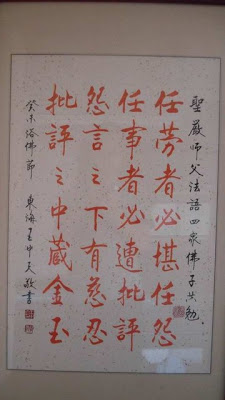 聖嚴師父法語四眾佛子共勉
任勞者必堪任怨
任事者必遭批評
怨言之下有慈忍
批評之中藏金玉
癸未浴佛節 東海王中天敬書